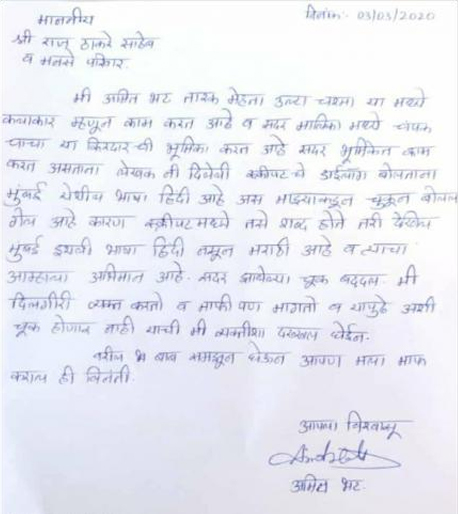 दिनांक:- 03/03/2020
माननीय
श्री राज ठाकरे साहेब
व मनसे परिवार.
मी अमित भट तारक मेहता उल्टा चश्मा या मध्ये
कलाकार म्हणून काम करत आहे व सदर मालिका मध्ये चंपक
चाचा या किरदार ची भूमिका करत आहे सदर भूमिकेत काम
करत असताना लेखक नी दिलेली स्क्रीपटचे डाईलॉग बोलताना
मुंबई येथील भाषा हिंदी आहे असं माझ्याकडून चुकून बोलल
गेल आहे कारण स्क्रीपटमध्ये तसे शब्द होते तरी देखिल
मुंबई इथली भाषा हिंदी नसून मराठी आहे व त्याचा
आम्हाला अभिमान आहे. सदर झालेल्या चूक बद्दल मी
दिलगीरी व्यक्त करतो व माफी पण मागतो व यापुढे अशी
चूक होणार नाही याची मी व्यक्तीशा दखल घेईन.
वरील बाब समजून घेऊन आपण मला माफ
कराल ही विनंती.
आपला विश्वासू
अमित भट.